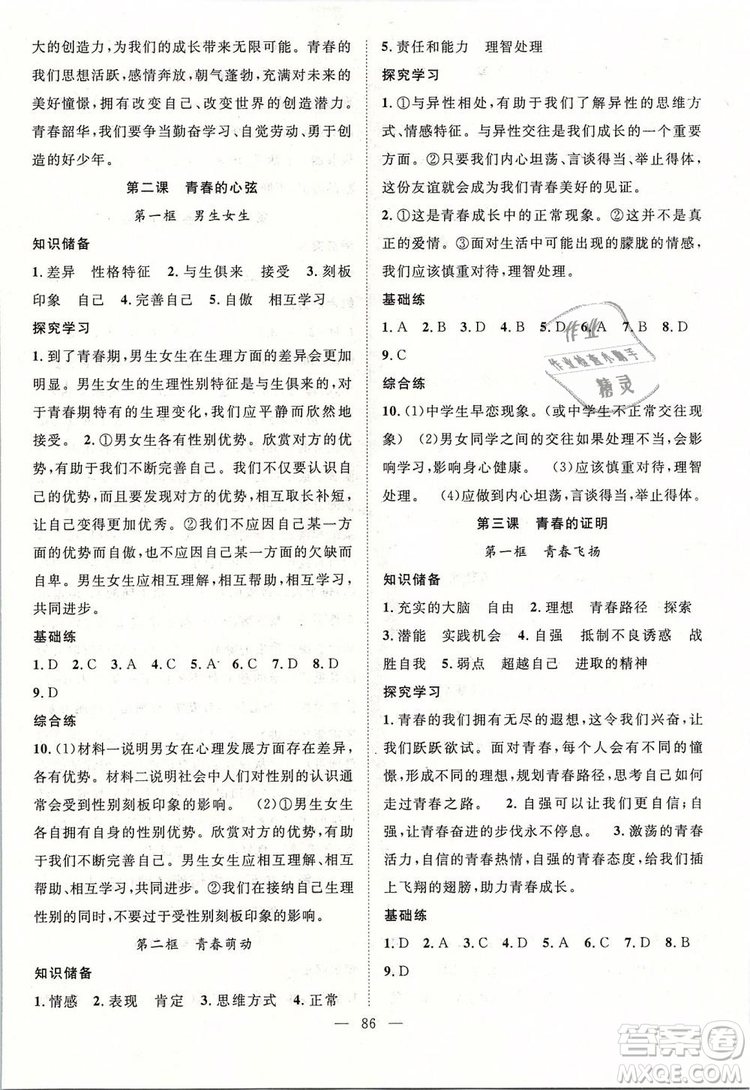 大的创造力，为我们的成长带来无限可能。青春的
我们思想活跃，感情奔放，朝气蓬勃，充满对未来的
美好憧憬，拥有改变自己、改变世界的创造潜力。
青春韶华，我们要争当勤奋学习、自觉劳动、勇于创
造的好少年。
第二课 青春的心弦
第一框 男生女生
知识储备
1.差异 性格特征 2.与生俱来 接受 3.刻板
印象 自己 4.完善自己 5.自傲 相互学习
探究学习
1.到了青春期，男生女生在生理方面的差异会更加
明显。男生女生的生理性别特征是与生俱来的，
青春期特有的生理变化，我们应平静而欣然地
接受。 2.①男女生各有性别优势。欣赏对方的优
势，有助于我们不断完善自己。②我们不仅要认识自
己的优势，而且要发现对方的优势，相互取长补短，
让自己变得更加优秀。③不应因自己某一方面
的优势而自傲，也不应因自己某一方面的欠缺而
自卑。男生女生应相互理解，相互帮助，相互学习，
共同进步。
基础练
1.D 2.C 3.A 4.C 5.D 6.A 7.C 8.C
9.D
综合练
10.(1)材料一说明男女在心理发展方面存在差异，
各有优势。材料二说明社会中人们对性别的认识通
常会受到性别刻板印象的影响。 (2)①男生女生
各自拥有自身的性别优势。欣赏对方的优势，有助
于我们不断完善自己。男生女生应相互理解、相互
帮助、相互学习，共同进步。②我们在接纳自己生理
性别的同时，不要过于受性别刻板印象的影响。
第二框 青春萌动
知识储备
1.情感 2.表现 肯定 3.思维方式 4.正常
5.责任和能力 理智处理
探究学习
1.①与异性相处，有助于我们了解异性的思维方
式、情感特征。与异性交往是我们成长的一个重要
方面。②只要我们内心坦荡、言谈得当、举止得体，
这份友谊就会成为我们青春美好的见证。
2.①这是青春成长中的正常现象。②但这不是真
正的爱情。③生活中可能出现的朦胧的情感，
我们应该慎重对待，理智处理。
基础练
1.A 2.B 3.C 4.B 5.D 6.D 7.B 8.D
9.C
综合练
10.(1)中学生早恋现象。(或中学生不正常交往现
象) (2)男女同学之间的交往如果处理不当，会影
响学习，影响身心健康。 (3)应该慎重对待，理智
处理。 (4)应做到内心坦荡，言谈得当、举止得体。
第三课 青春的证明
第一框 青春飞扬
知识储备
1.充实的大脑 自由 2.理想 青春路径 探索
3.潜能 实践机会 4.自强 抵制不良诱惑 战
胜自我 5.弱点 超越自己 进取的精神
探究学习
1.青春的我们拥有无尽的遐想，这令我们兴奋，让
我们跃跃欲试。面对青春，我们带着各种各样的憧
憬，形成不同的理想，规划青春路径，探索如何
走过青春之路。 2.自强可以让我们更加自信、自
尊，让青春奋进的步伐永不停息。 3.激荡的青春
活力，自信的青春热情，自强的青春态度，给我们插
上飞翔的翅膀，助力青春成长。
基础练
1.D 2.D 3.A 4.C 5.B 6.D 7.D 8.B
9.D
— 86 —
作业
作业检查小助手
精灵
答案圈
MXQE.COM